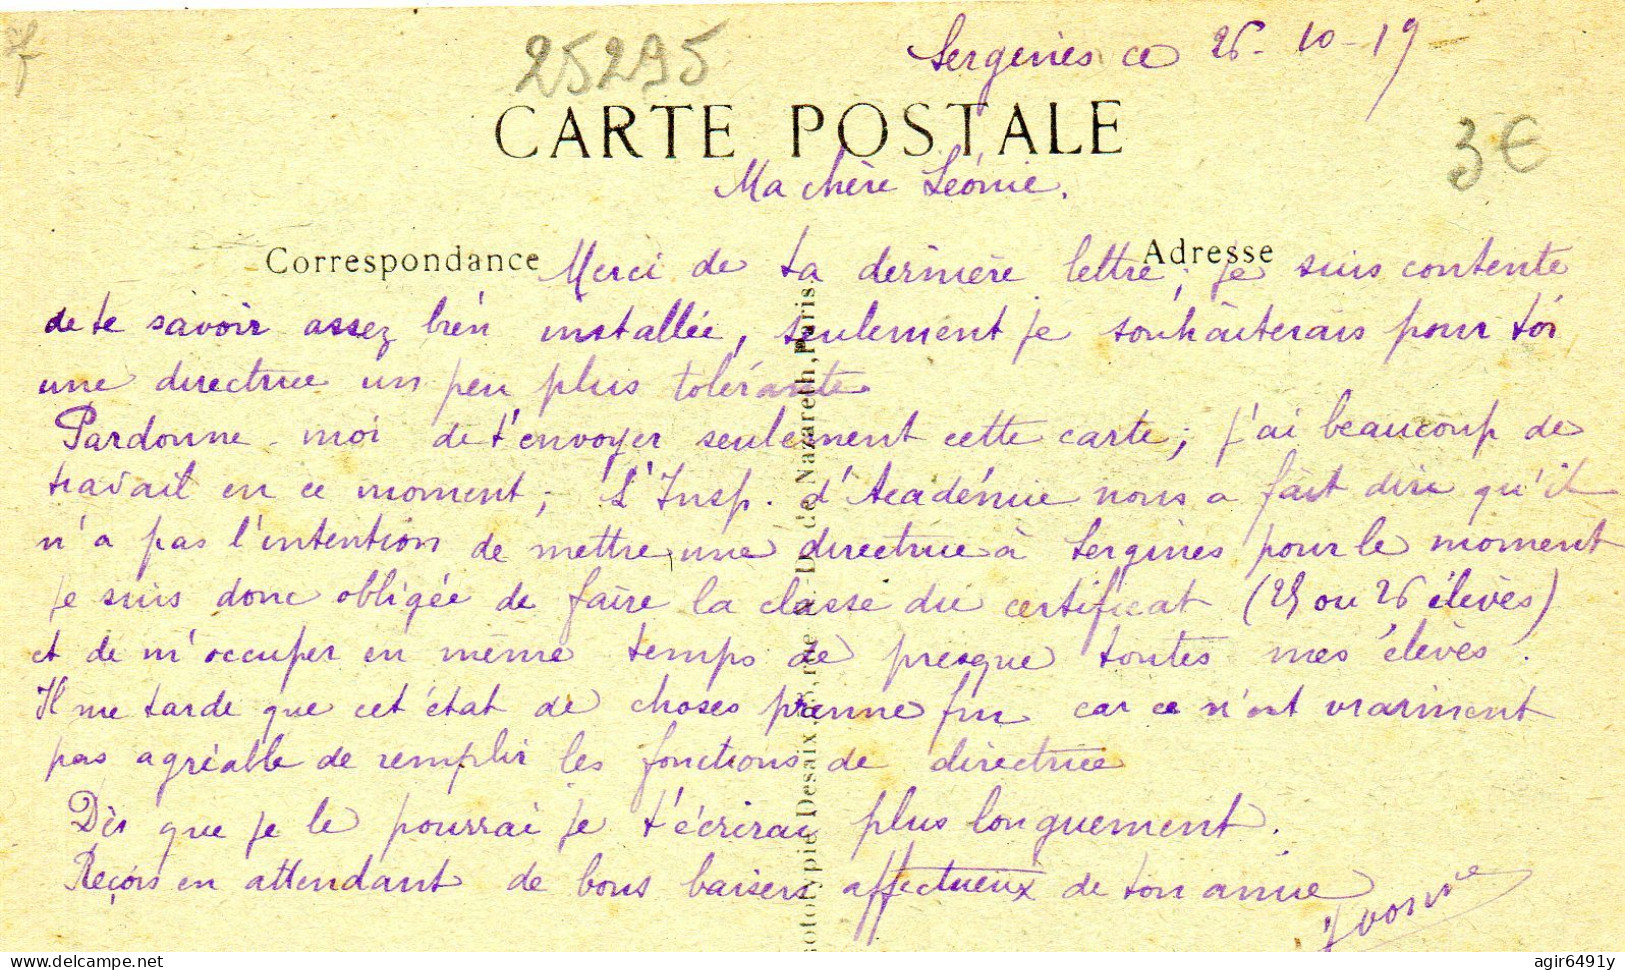 25295
Sergines ce 26-10-19
CARTE POSTALE
3€
Ma chère Léonie.
Correspondance
Adresse
Merci de ta dernière lettre; je suis contente
de te savoir assez bien installée, seulement je souhaiterais pour toi
une directrice un peu plus tolérante
Pardonne-moi de t'envoyer seulement cette carte; j'ai beaucoup de
travail en ce moment; L'Insp. d'Académie nous a fait dire qu'il
n'a pas l'intention de mettre une directrice à Sergines pour le moment
je suis donc obligée de faire la classe du certificat (25 ou 26 élèves)
et de m'occuper en même temps de presque toutes mes élèves.
Il me tarde que cet état de choses prenne fin car ce n'est vraiment
pas agréable de remplir les fonctions de directrice
Dès que je le pourrai je t'écrirai plus longuement.
Reçois en attendant de bons baisers affectueux de ton amie
Yvonne
sototypie Desaix, rue de Nazareth, Paris
delcampe.net
agir6491y